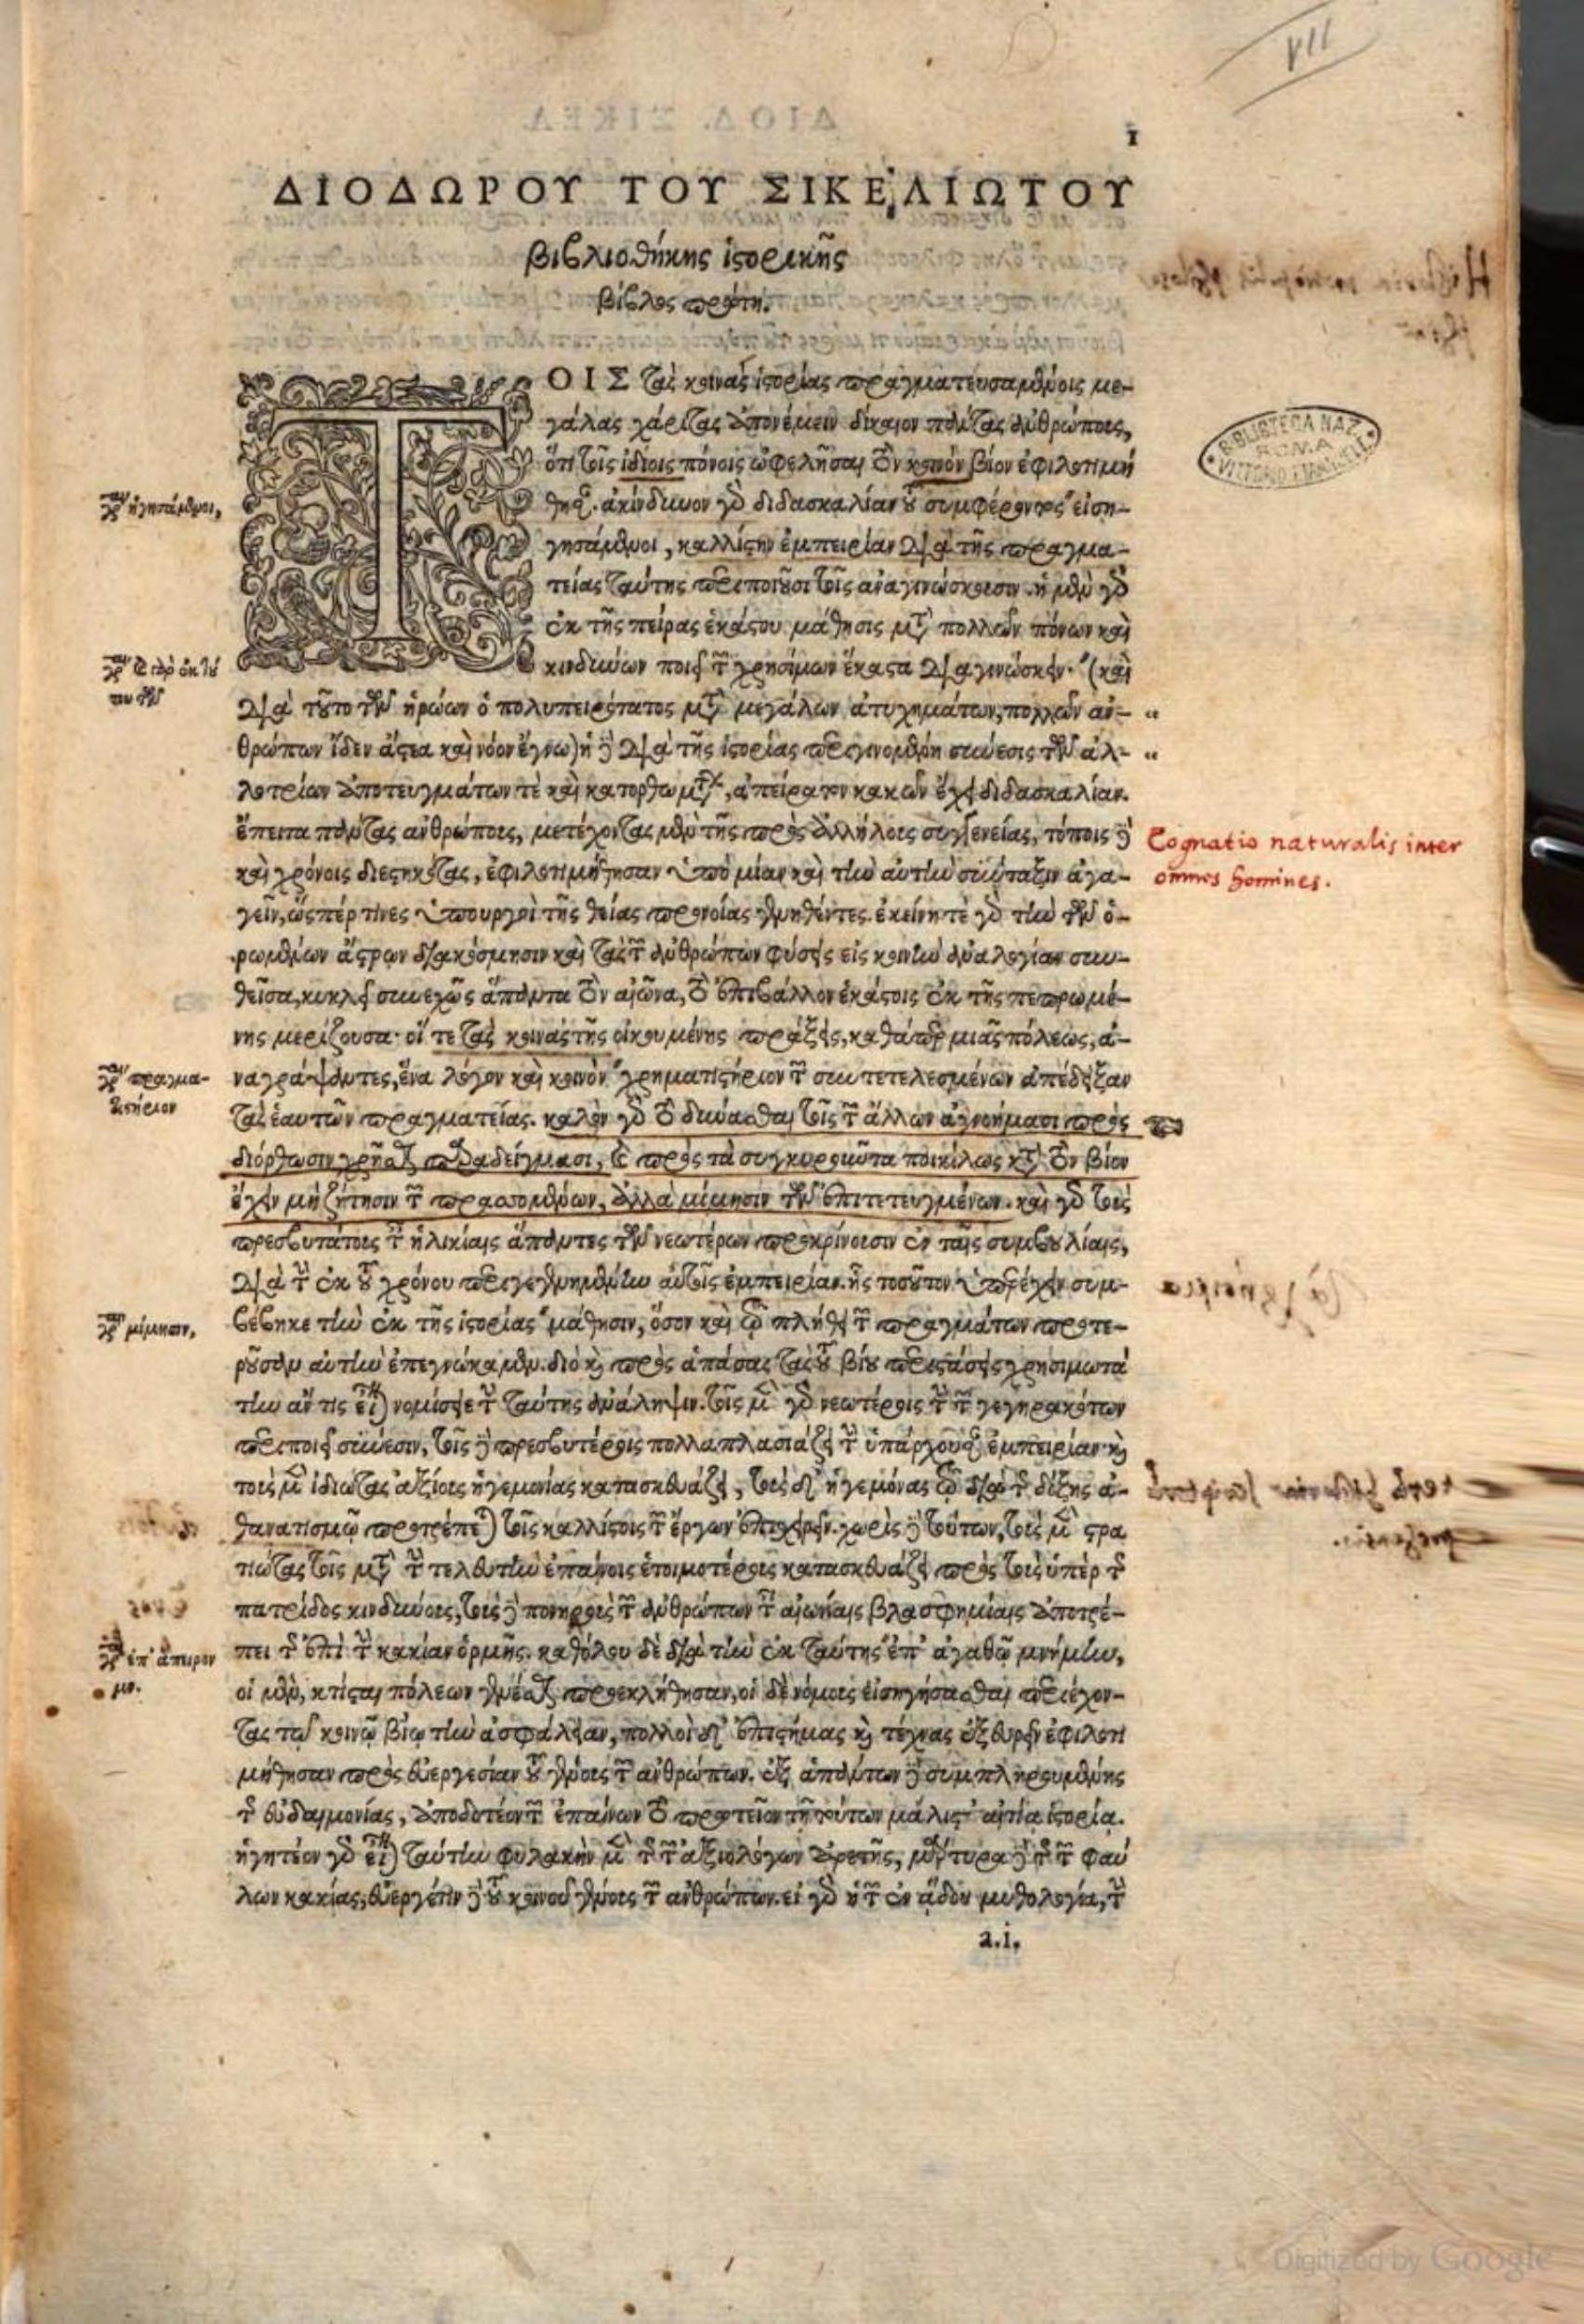 VII
1
ΔΙΟΔΩΡΟΥ ΤΟΥ ΣΙΚΕΛΙΩΤΟΥ
βιβλιοθήκης ἱστορικῆς
βίβλος πρώτη.
ΤΟΙΣ τὰς κοινὰς ἱστορίας πραγματευσαμένοις με-
γάλας χάριτας ἀπονέμειν δίκαιον πάντας ἀνθρώπους,
ὅτι τοῖς ἰδίοις πόνοις ὠφελῆσαι τὸν κοινὸν βίον ἐφιλοτιμή
θησαν. ἀκίνδυνον γὰρ διδασκαλίαν τοῦ συμφέροντος εἰση-
γησάμενοι, καλλίστην ἐμπειρίαν διὰ τῆς πραγμα-
τείας ταύτης περιποιοῦσι τοῖς ἀναγινώσκουσιν. ἡ μὲν γὰρ
ἐκ τῆς πείρας ἑκάστου μάθησις μετὰ πολλῶν πόνων καὶ
κινδύνων ποιεῖ τῶν χρησίμων ἕκαστα διαγινώσκειν. (καὶ
διὰ τοῦτο τῶν ἡρώων ὁ πολυπειρότατος μετὰ μεγάλων ἀτυχημάτων, πολλῶν ἀν- "
θρώπων ἴδεν ἄστεα καὶ νόον ἔγνω) ἡ δὲ διὰ τῆς ἱστορίας περιγινομένη σύνεσις τῶν ἀλ- "
λοτρίων ἀποτευγμάτων τὲ καὶ κατορθωμάτων, ἀπείρατον κακῶν ἔχει διδασκαλίαν.
ἔπειτα πάντας ἀνθρώπους, μετέχοντας μὲν τῆς πρὸς ἀλλήλους συγγενείας, τόποις δὲ
καὶ χρόνοις διεστηκότας, ἐφιλοτιμήθησαν ὑπὸ μίαν καὶ τὴν αὐτὴν σύνταξιν ἀγα-
γεῖν, ὥσπέρ τινες ὑπουργοὶ τῆς θείας προνοίας γενηθέντες. ἐκείνη τὲ γὰρ τὴν τῶν ὁ-
ρωμένων ἄστρων διακόσμησιν καὶ τὰς τῶν ἀνθρώπων φύσεις εἰς κοινὴν ἀναλογίαν συν-
θεῖσα, κυκλεῖ συνεχῶς ἅπαντα τὸν αἰῶνα, τὸ ἐπιβάλλον ἑκάστοις ἐκ τῆς πεπρωμέ-
νης μερίζουσα· οἵ τε τὰς κοινὰς τῆς οἰκουμένης πράξεις, καθάπερ μιᾶς πόλεως, ἀ-
ναγράψαντες, ἕνα λόγον καὶ κοινὸν χρηματιστήριον τῶν συντετελεσμένων ἀπέδειξαν
τὰς ἑαυτῶν πραγματείας. καλὸν γὰρ τὸ δύνασθαι τοῖς τῶν ἄλλων ἀγνοήμασι πρὸς
διόρθωσιν χρῆσθαι παραδείγμασι, καὶ πρὸς τὰ συγκυροῦντα ποικίλως κατὰ τὸν βίον
ἔχειν μὴ ζήτησιν τῶν πρασσομένων, ἀλλὰ μίμησιν τῶν ἐπιτετευγμένων. καὶ γὰρ τοὺς
πρεσβυτάτους ταῖς ἡλικίαις ἅπαντες τῶν νεωτέρων προκρίνουσιν ἐν ταῖς συμβουλίαις,
διὰ τὴν ἐκ τοῦ χρόνου περιγεγενημένην αὐτοῖς ἐμπειρίαν. ἧς τοσοῦτον ὑπερέχειν συμ-
βέβηκε τὴν ἐκ τῆς ἱστορίας μάθησιν, ὅσον καὶ τῷ πλήθει τῶν πραγμάτων προτε-
ροῦσαν αὐτὴν ἐπεγνώκαμεν. διὸ καὶ πρὸς ἁπάσας τὰς τοῦ βίου περιστάσεις χρησιμωτά
την ἄν τις εἶναι νομίσειε τὴν ταύτης ἀνάληψιν. τοῖς μὲν γὰρ νεωτέροις τὴν τῶν γεγηρακότων
περιποιεῖ σύνεσιν, τοῖς δὲ πρεσβυτέροις πολλαπλασιάζει τὴν ὑπάρχουσαν ἐμπειρίαν· καὶ
τοὺς μὲν ἰδιώτας ἀξίους ἡγεμονίας κατασκευάζει, τοὺς δ' ἡγεμόνας τῷ διὰ τῆς δόξης ἀ-
θανατισμῷ προτρέπεται τοῖς καλλίστοις τῶν ἔργων ἐπιχειρεῖν. χωρὶς δὲ τούτων, τοὺς μὲν στρα
τιώτας τοῖς μετὰ τὴν τελευτὴν ἐπαίνοις ἑτοιμοτέρους κατασκευάζει πρὸς τοὺς ὑπὲρ τῆς
πατρίδος κινδύνους, τοὺς δὲ πονηροὺς τῶν ἀνθρώπων ταῖς αἰωνίαις βλασφημίαις ἀποτρέ-
πει τῆς ἐπὶ τὴν κακίαν ὁρμῆς. καθόλου δὲ διὰ τὴν ἐκ ταύτης ἐπ' ἀγαθῷ μνήμην,
οἱ μὲν, κτίσται πόλεων γενέσθαι προεκλήθησαν, οἱ δὲ νόμους εἰσηγήσασθαι περιέχον-
τας τῷ κοινῷ βίῳ τὴν ἀσφάλειαν, πολλοὶ δ' ἐπιστήμας καὶ τέχνας ἐξευρεῖν ἐφιλοτι
μήθησαν πρὸς εὐεργεσίαν τοῦ γένους τῶν ἀνθρώπων. ἐξ ἁπάντων δὲ συμπληρουμένης
τῆς εὐδαιμονίας, ἀποδοτέον τῶν ἐπαίνων τὸ πρωτεῖον τῇ τούτων μάλιστ' αἰτίᾳ ἱστορίᾳ.
ἡγητέον γὰρ εἶναι ταύτην φυλακὴν μὲν τῆς τῶν ἀξιολόγων ἀρετῆς, μάρτυρα δὲ τῆς τῶν φαύ
λων κακίας, εὐεργέτιν δὲ τοῦ κοινοῦ γένους τῶν ἀνθρώπων. εἰ γὰρ ἡ τῶν ἐν ᾅδου μυθολογία, τὴν
a.i.
γρ. ἡγησάμενοι,
γρ. πραγμα-
τιστήριον
γρ. μίμησιν,
γρ. ἐπ' ἄπειρον
μν.
Cognatio naturalis inter
omnes homines.
BIBLIOTECA NAZ.
ROMA
VITTORIO EMANUELE
Digitized by Google